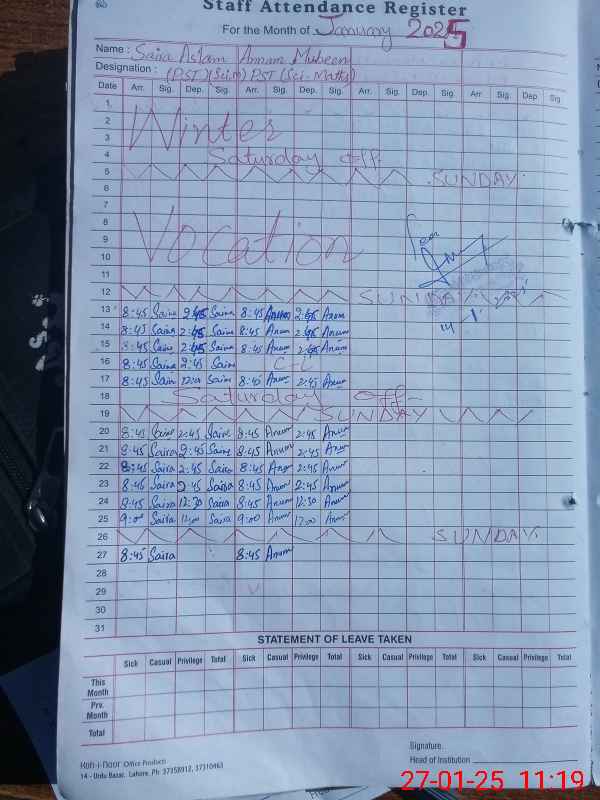 Staff Attendance Register
For the Month of January 2025
Name : Saira Aslam Annam Mubeen
Designation : (PST)(Scim) PST (Sci-Maths)
Date Arr. Sig. Dep. Sig. Arr. Sig. Dep. Sig. Arr. Sig. Dep. Sig. Arr. Sig. Dep. Sig.
1.
2 Winter
3
4 Saturday off
5 SUNDAY
6
7
8 Vocation
9
10
11
12 SUNDAY
13 8:45 Saira 2:45 Saira 8:45 Anum 2:45 Anum
14 8:45 Saira 2:45 Saira 8:45 Anum 2:45 Anum
15 8:45 Saira 2:45 Saira 8:45 Anum 2:45 Anum
16 8:45 Saira 2:45 Saira C-L
17 8:45 Saira 12:00 Saira 8:45 Anum 2:45 Anum
18 Saturday Off
19 SUNDAY
20 8:45 Saira 2:45 Saira 8:45 Anum 2:45 Anum
21 8:45 Saira 2:45 Saira 8:45 Anum 2:45 Anum
22 8:45 Saira 2:45 Saira 8:45 Anum 2:45 Anum
23 8:45 Saira 2:45 Saira 8:45 Anum 2:45 Anum
24 8:45 Saira 12:30 Saira 8:45 Anum 12:30 Anum
25 9:00 Saira 12:00 Saira 9:00 Anum 12:00 Anum
26 SUNDAY
27 8:45 Saira 8:45 Anum
28
29
30
31
STATEMENT OF LEAVE TAKEN
Sick Casual Privilege Total Sick Casual Privilege Total Sick Casual Privilege Total Sick Casual Privilege Total
This Month
Prv. Month
Total
Koh-i-noor Office Products
14 - Urdu Bazar, Lahore. Ph: 37358912, 37310463
Signature.
Head of Institution
27-01-25 11:19